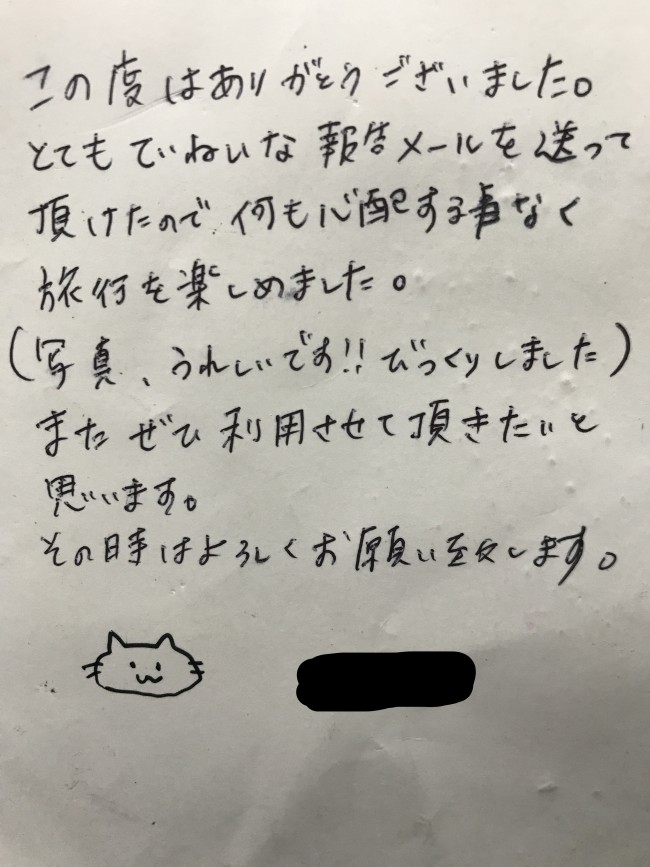 この度はありがとうございました。
とてもていねいな報告メールを送って
頂けたので何も心配する事なく
旅行を楽しめました。
(写真、うれしいです!!びっくりしました)
またぜひ利用させて頂きたいと
思います。
その時はよろしくお願い致します。